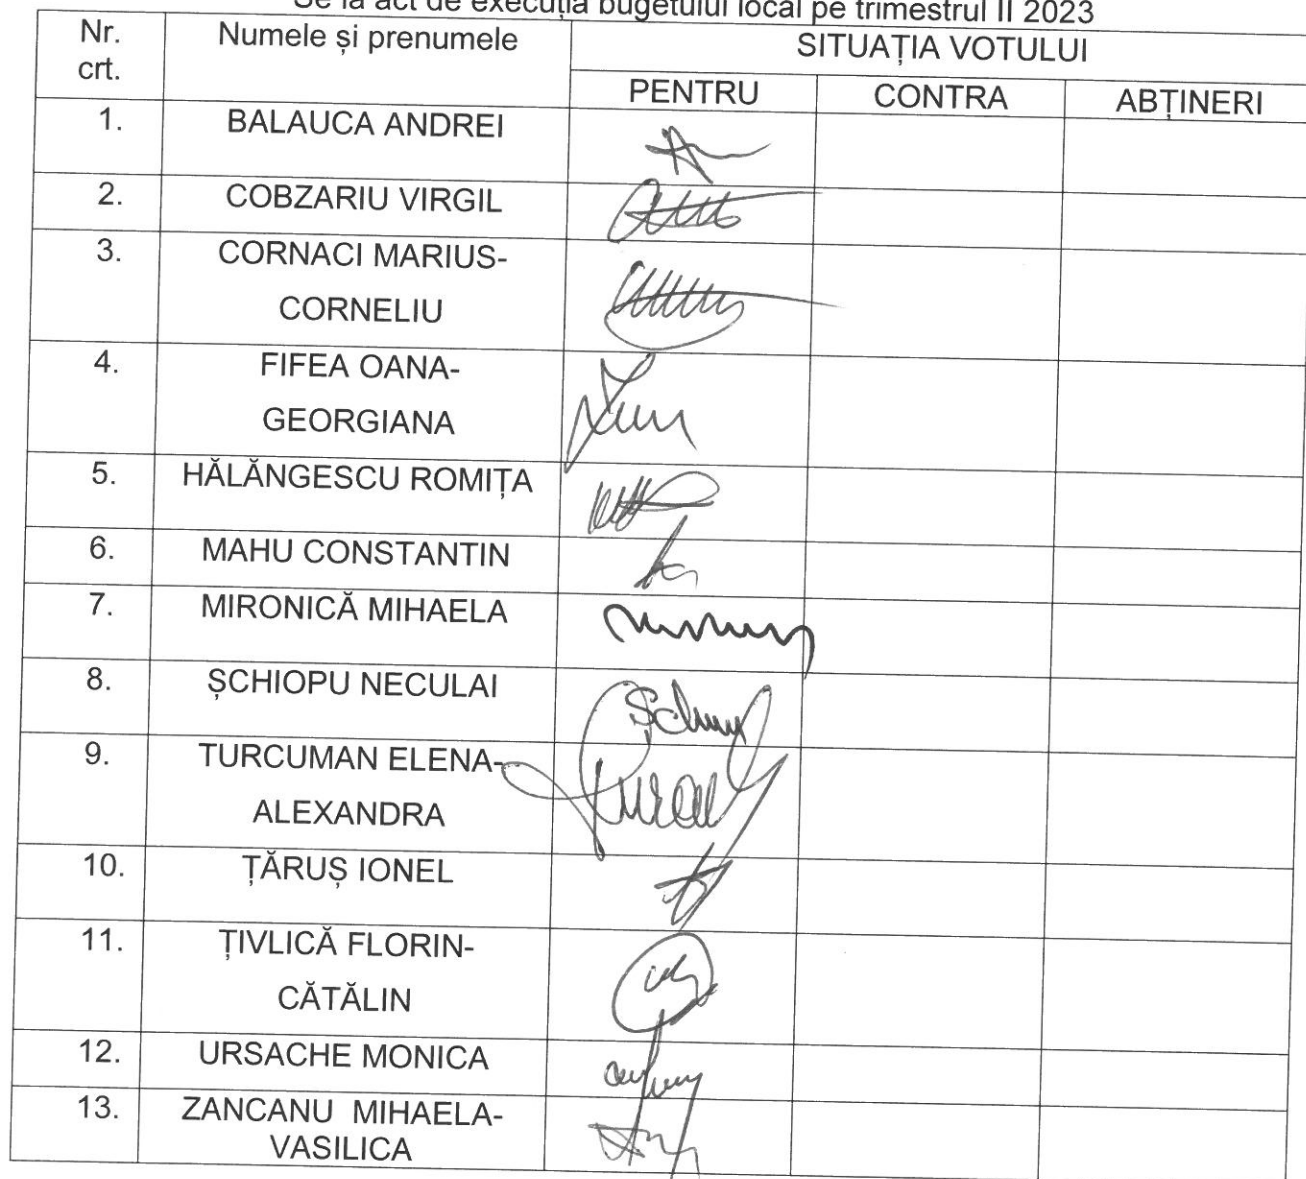 Se ia act de execuția bugetului local pe trimestrul II 2023
Nr. crt. Numele și prenumele SITUAȚIA VOTULUI
PENTRU CONTRA ABȚINERI
1. BALAUCA ANDREI
2. COBZARIU VIRGIL
3. CORNACI MARIUS-
CORNELIU
4. FIFEA OANA-
GEORGIANA
5. HĂLĂNGESCU ROMIȚA
6. MAHU CONSTANTIN
7. MIRONICĂ MIHAELA
8. ȘCHIOPU NECULAI
9. TURCUMAN ELENA-
ALEXANDRA
10. ȚĂRUȘ IONEL
11. ȚIVLICĂ FLORIN-
CĂTĂLIN
12. URSACHE MONICA
13. ZANCANU MIHAELA-
VASILICA